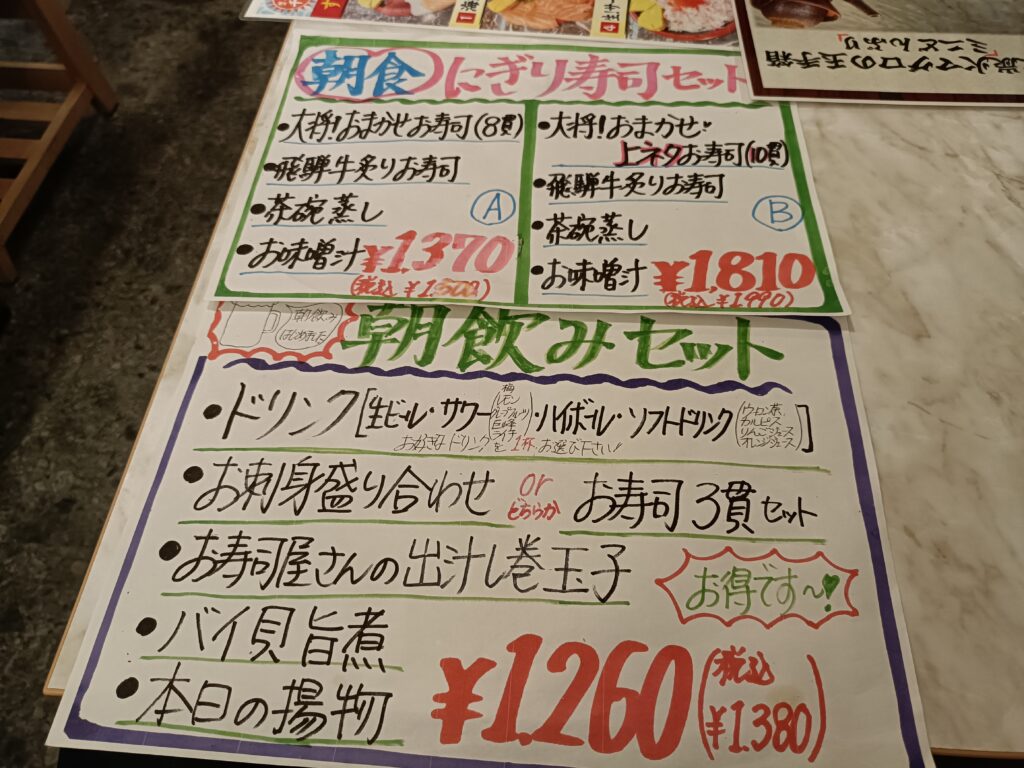 朝食 にぎり寿司セット
・大将!おまかせお寿司(8貫)
・飛騨牛炙りお寿司
・茶碗蒸し
・お味噌汁
A
¥1,370
・大将!おまかせ♥
上ネタお寿司(10貫)
・飛騨牛炙りお寿司
・茶碗蒸し
・お味噌汁
B
¥1,810
(税込 ¥1,990)
朝飲み
はじめました!
朝飲みセット
・ドリンク[生ビール・サワー(梅 レモン グレープフルーツ 巨峰 ライチ)・ハイボール・ソフトドリンク(ウーロン茶 カルピス りんごジュース オレンジジュース)]
お好きなドリンクを1杯、お選び下さい!
・お刺身盛り合わせ or どちらか お寿司3貫セット
・お寿司屋さんの出汁し巻玉子
お得です〜!♥
・バイ貝旨煮
・本日の揚物
¥1,260 (税込 ¥1,380)
炭火マグロの玉手箱
「ミニどんぶり」